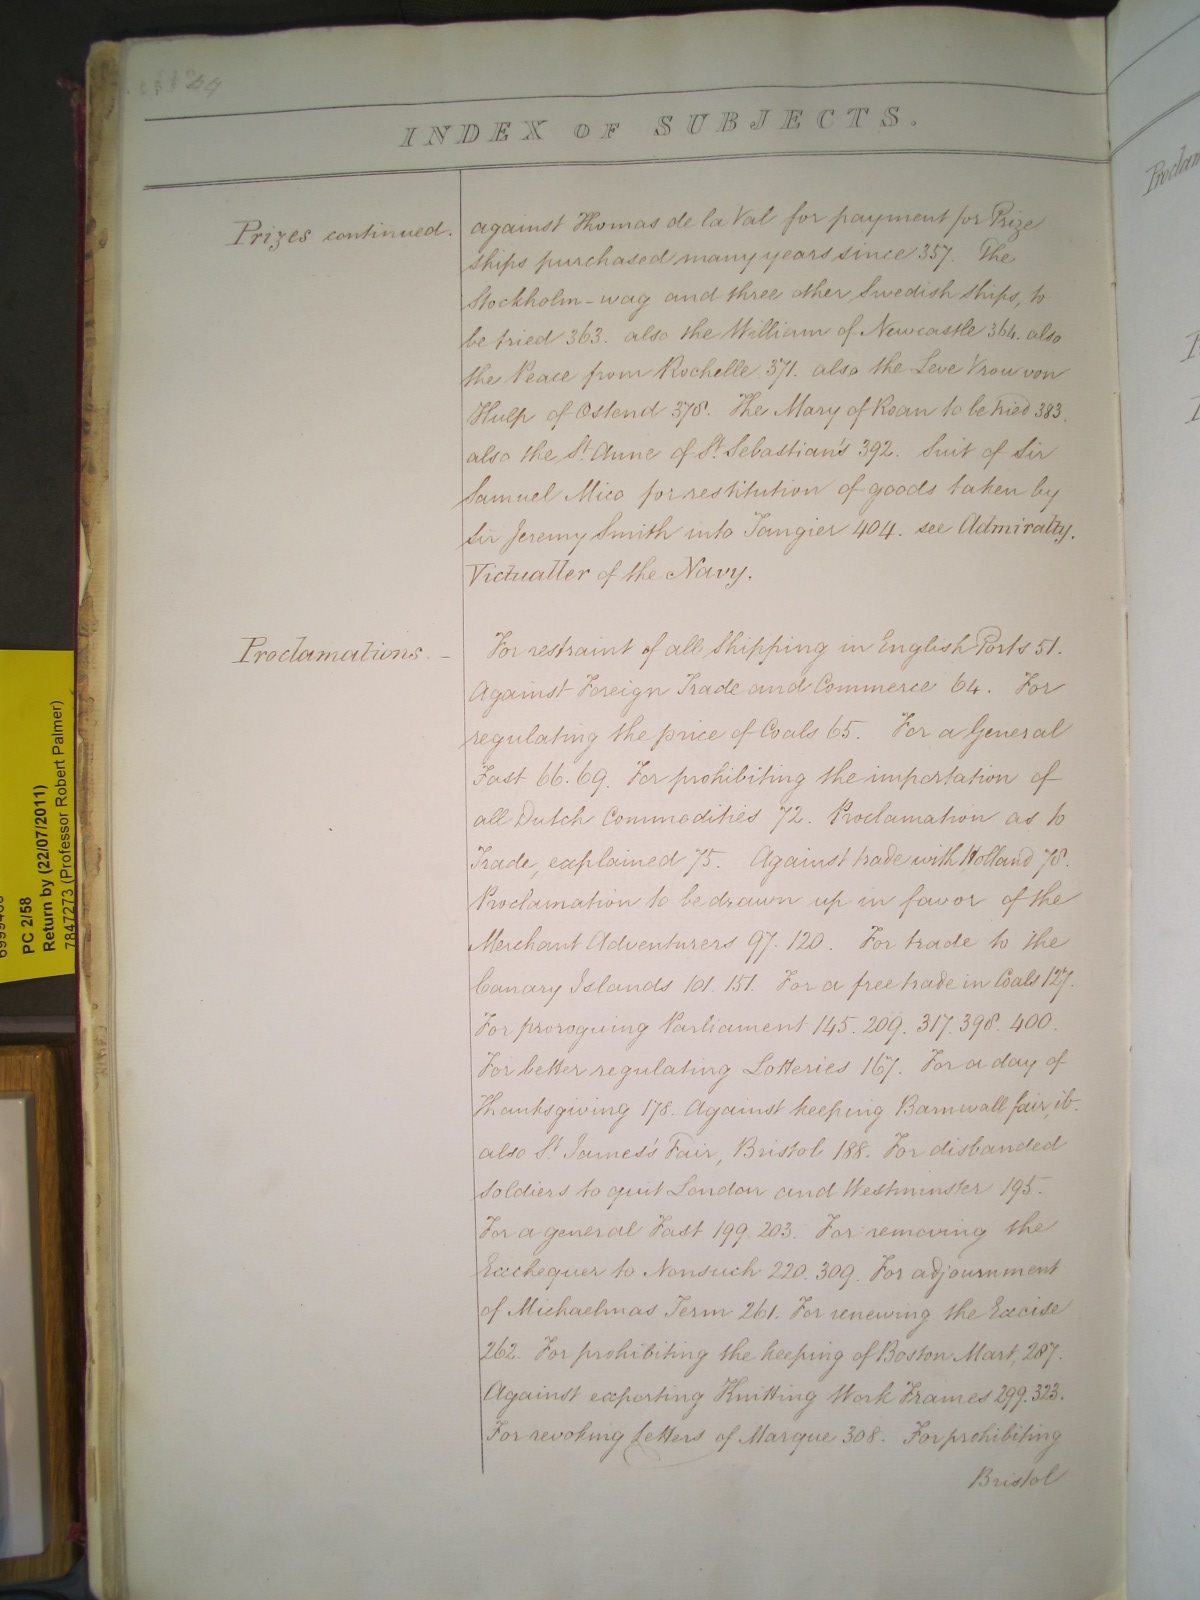 INDEX OF SUBJECTS.
Prizes continued.
against Thomas de la Val for payment for Prize
ships purchased many years since 357. The
Stockholm-wag and three other Swedish ships, to
be tried 363. also the William of Newcastle 364. also
the Peace from Rochelle 371. also the Leve Vrou von
Hulp of Ostend 378. The Mary of Roan to be tried 383.
also the St. Anne of St. Sebastian's 392. Suit of Sir
Samuel Mico for restitution of goods taken by
Sir Jeremy Smith into Tangier 404. see Admiralty.
Victualler of the Navy.
Proclamations. -
For restraint of all Shipping in English Ports 51.
Against Foreign Trade and Commerce 64. For
regulating the price of Coals 65. For a General
Fast 66. 69. For prohibiting the importation of
all Dutch Commodities 72. Proclamation as to
Trade, explained 75. Against trade with Holland 78.
Proclamation to be drawn up in favor of the
Merchant Adventurers 97. 120. For trade to the
Canary Islands 101. 151. For a free trade in Coals 127.
For proroguing Parliament 145. 209. 317. 398. 400.
For better regulating Lotteries 167. For a day of
Thanksgiving 178. Against keeping Barnwall fair, ib.
also St. James's Fair, Bristol 188. For disbanded
Soldiers to quit London and Westminster 195.
For a general Fast 199. 203. For removing the
Exchequer to Nonsuch 220. 309. For adjournment
of Michaelmas Term 261. For renewing the Excise
262. For prohibiting the keeping of Boston Mart, 287.
Against exporting Knitting Work Frames 299. 323.
For revoking Letters of Marque 308. For prohibiting
Bristol
PC 2/58
Return by (22/07/2011)
7847273 (Professor Robert Palmer)